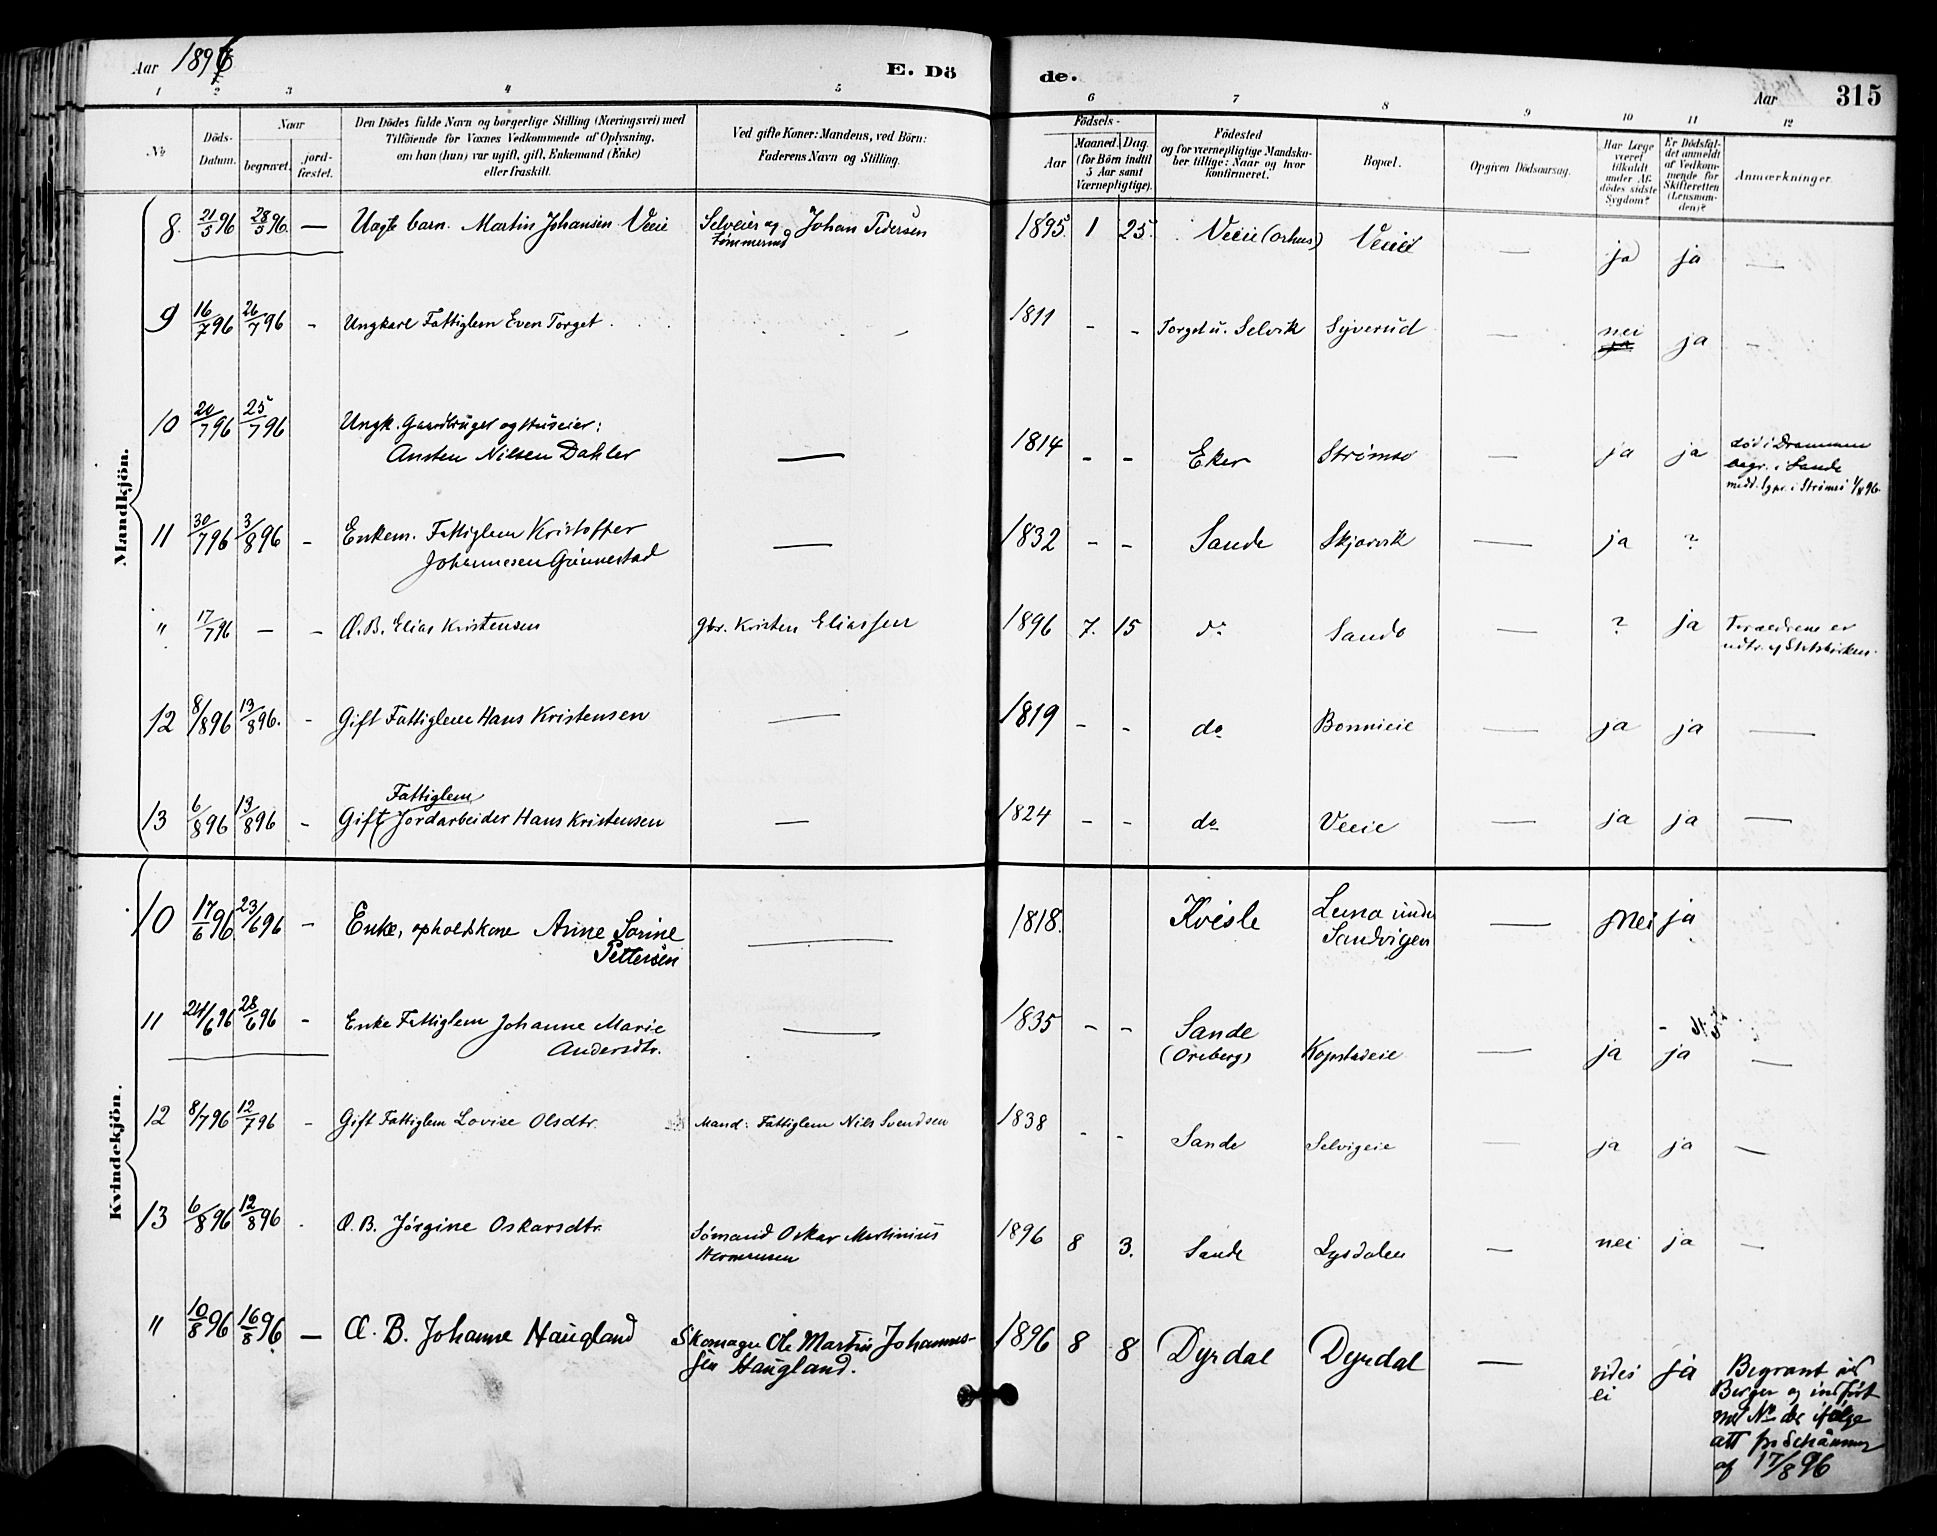 Aar 1896
E. Dö
de.
Aar
315
1 2 3 4 5 6 7 8 9 10 11 12
No
Döds-
Datum.
Naar
begravet.
jord-
fæstet.
Den Dödes fulde Navn og borgerlige Stilling (Næringsvei) med
Tilföiende for Voxnes Vedkommende af Oplysning,
om han (hun) var ugift, gift, Enkemand (Enke)
eller fraskilt.
Ved gifte Koner: Mandens, ved Börn:
Faderens Navn og Stilling.
Födsels-
Aar
Maaned. Dag.
(for Börn indtil
5 Aar samt
Værnepligtige).
Födested
og for værnepligtige Mandska-
ber tillige: Naar og hvor
konfirmeret.
Bopæl.
Opgiven Dödsaarsag.
Har Læge
været
tilkaldt
under Af-
dödes sidste
Sygdom?
Er Dödsfal-
det anmeldt
af Vedkom-
mende for
Skifteretten
(Lensman-
den)?
Anmærkninger.
Mandkjön.
8. 21/5 96 28/5 96. — Uægte barn. Martin Johansen Veeie Selveier og Johan Pedersen 1895. 1 25. Veeie (Orhus) Veeie — ja ja —
Tømmermd
9 16/7 96 26/7 96 - Ungkarl Fattiglem Even Torget 1811 - - Torget u. Selvik Syverud nei ja -
ja
10 20/7 96 25/7 96 Ungk. Gaardbruger og Huseier:
Ansten Nilsen Dahler — 1814 - - Eker Strømsø — ja ja død i Drammen
begr. i Sande
medd. Sgpr. i Strømsø 1/8 96.
11 30/7 96 3/8 96 - Enkem. Fattiglem Kristoffer
Johannesen Gunnestad — 1832 - - Sande Skjørvik — ja ?
" 17/7 96 — - Æ. B. Elias Kristensen gbr. Kristen Eliassen 1896 7. 15 do Sande — ? ja Foræeldrene er
udtr. af Statskirken.
12 8/8 96 13/8 96. - Gift Fattiglem Hans Kristensen — 1819 - - do Bonnieie — ja ja —
Fattiglem
13 6/8 96 13/8 96 - Gift Jordarbeider Hans Kristensen — 1824 - - do Veeie — ja ja —
Kvindekjön.
10 17/6 96 23/6 96 - Enke, opholdskone Anne Sorine
Pettersen — 1818. Kvisle Luna under
Sandvigen — nei ja
11 24/6 96 28/6 96 - Enke Fattiglem Johanne Marie
Andersdtr. — 1835 - - Sande
(Oreberg) Kopstadeie — ja ja —
12 8/7 96 12/7 96 - Gift Fattiglem Lovise Olsdtr. Mand: Fattiglem Nils Svendsen 1838 - - Sande Selvigeie — ja ja —
13 6/8 96 12/8 96 - Æ. B. Jørgine Oskarsdtr. Sømand Oskar Martinius
Hermansen 1896 8 3. Sande Lysdalen — nei ja —
" 10/8 96 16/8 96 — Æ. B. Johanne Haugland Skomager Ole Martin Johannes-
sen Haugland. 1896 8 8 Dyrdal Dyrdal — vides
ei ja Begravet ved
Berger og indført
med No der ifølge
att fr Schanning
af 17/8 96